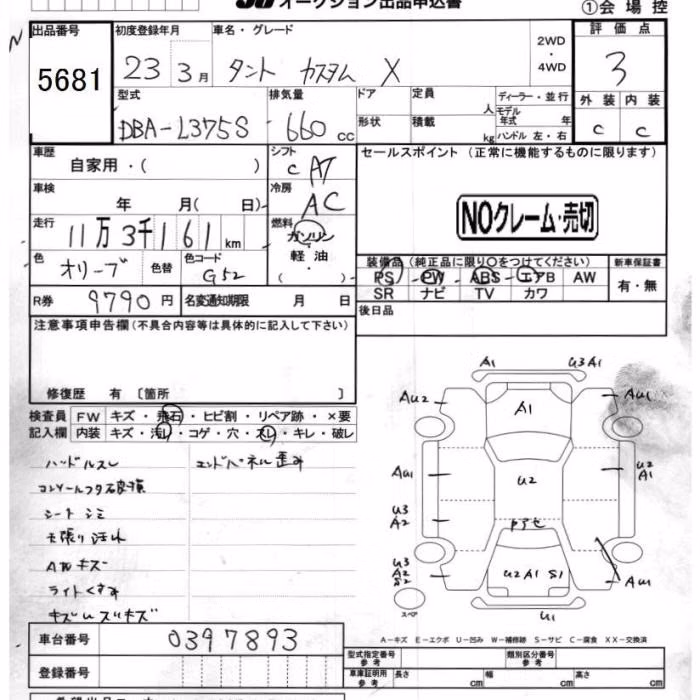 オークション出品申込書
①会場控
出品番号 初度登録年月 車名・グレード 評価点
5681 23 3月 タント カスタム X 2WD・4WD 3
型式 排気量 ドア 定員 人 ディーラー・並行 外装 内装
DBA-L375S 660 cc 形状 積載 kg モデル年式 年 ハンドル 左・右 C C
車歴 シフト セールスポイント (正常に機能するものに限ります)
自家用・( ) C AT
車検 冷房
年 月( 日) AC
NOクレーム・売切
走行 燃料
11万3千161km ガソリン
軽油
( )
色 色替 色コード
オリーブ G52
装備品(純正品に限り○をつけてください) 新車保証書
PS PW ABS エアB AW 有・無
SR ナビ TV カワ
R券 9790円 名変通知期限 月 日
後日品
注意事項申告欄(不具合内容等は具体的に記入して下さい)
修復歴 有 〔箇所 〕
検査員 FW キズ・飛石・ヒビ割・リペア跡・×要
記入欄 内装 キズ・汚れ・コゲ・穴・スレ・キレ・破レ
ハンドルスレ エンドパネル歪み
コンソールフタ破損
シートシミ
天張り汚れ
AWキズ
ライトくすみ
A1 U3 A1
AU2 A1 AU1
AU1 U2 U2 A1
U3 A2
U3 A2 S2 U2 A1 S1 AU1
スペア U1
A-キズ E-エクボ U-凹み W-補修跡 S-サビ C-腐食 XX-交換済
車台番号 0397893
型式指定番号 参考 類別区分番号 参考
登録番号
車庫証明用 参考 長さ cm 幅 cm 高さ cm